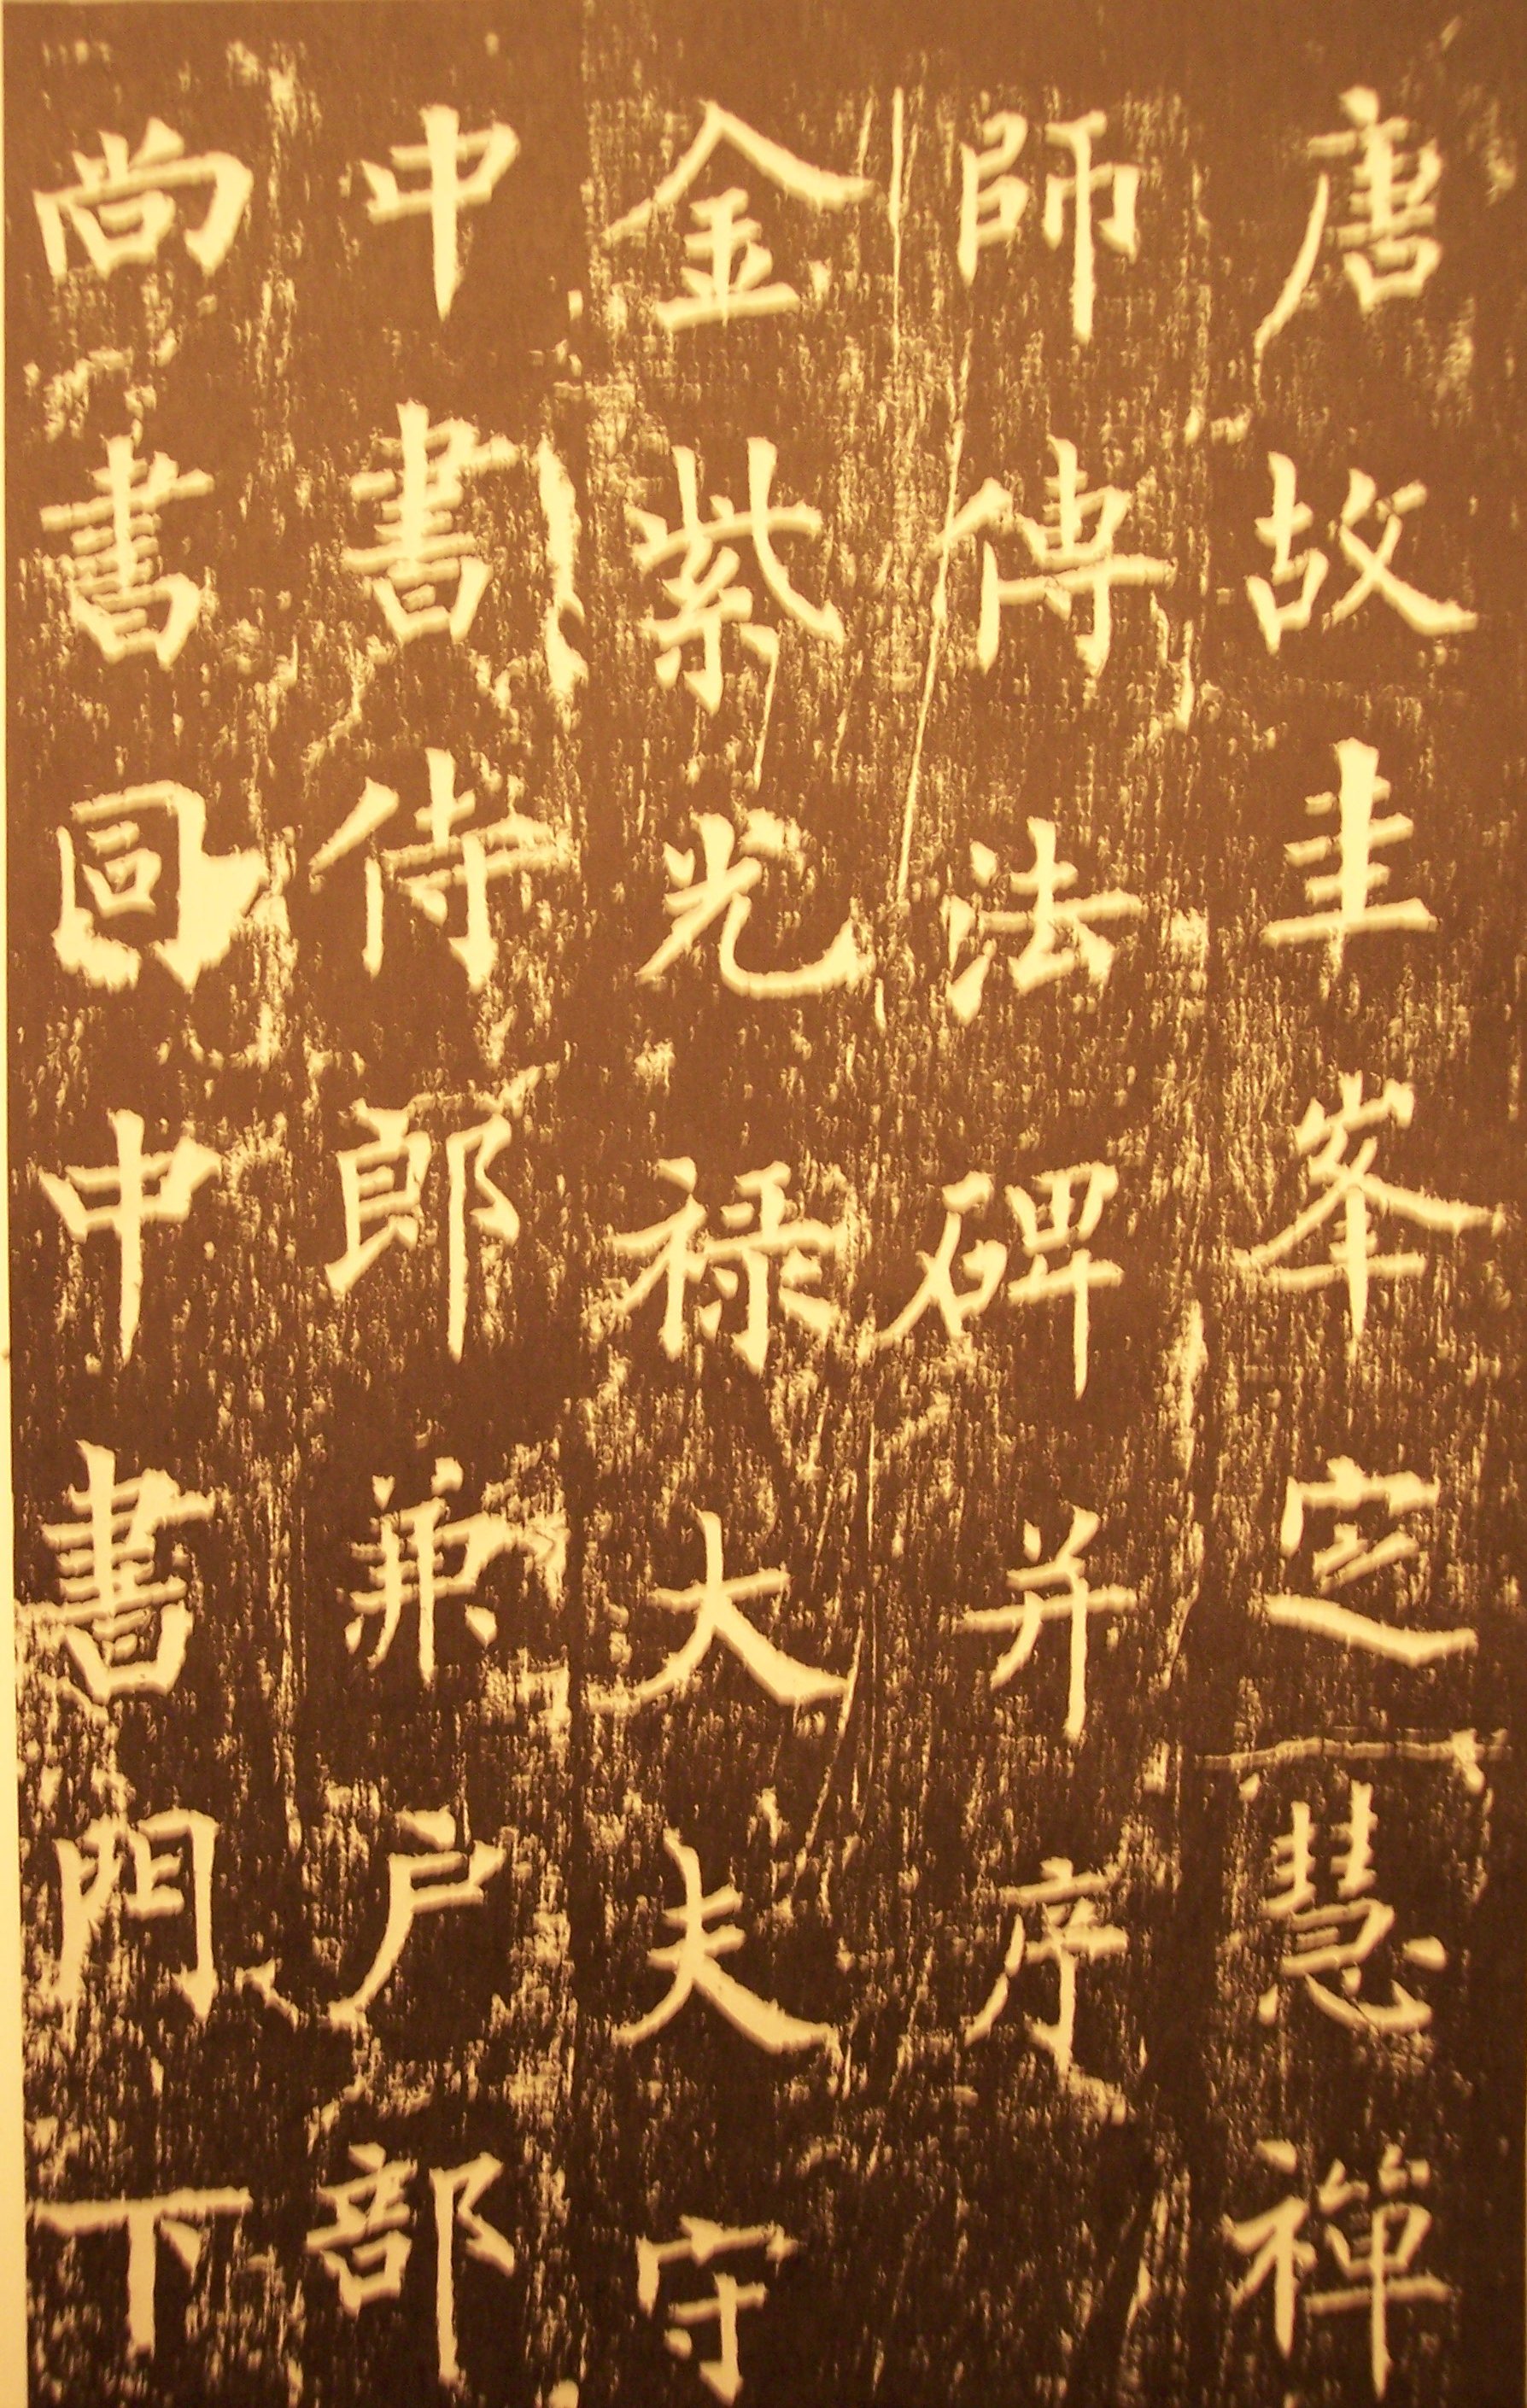 唐故圭峯定慧禪
師傳法碑并序
金紫光禄大夫守
中書侍郎兼户部
尚書同中書門下